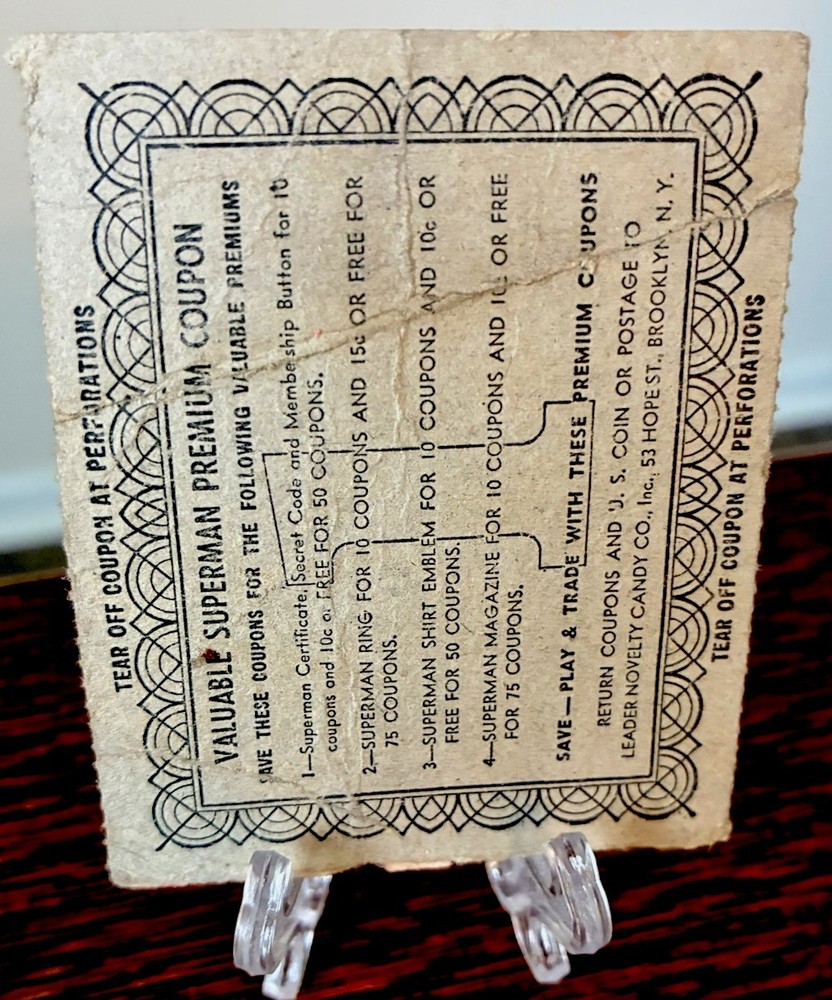 TEAR OFF COUPON AT PERFORATIONS
VALUABLE SUPERMAN PREMIUM COUPON
SAVE THESE COUPONS FOR THE FOLLOWING VALUABLE PREMIUMS
1—Superman Certificate, Secret Code and Membership Button for 10
coupons and 10c or FREE FOR 50 COUPONS.
2—SUPERMAN RING FOR 10 COUPONS AND 15c OR FREE FOR
75 COUPONS.
3—SUPERMAN SHIRT EMBLEM FOR 10 COUPONS AND 10c OR
FREE FOR 50 COUPONS.
4—SUPERMAN MAGAZINE FOR 10 COUPONS AND 10c OR FREE
FOR 75 COUPONS.
SAVE—PLAY & TRADE WITH THESE PREMIUM COUPONS
RETURN COUPONS AND U. S. COIN OR POSTAGE TO
LEADER NOVELTY CANDY CO., Inc., 53 HOPE ST., BROOKLYN, N. Y.
TEAR OFF COUPON AT PERFORATIONS